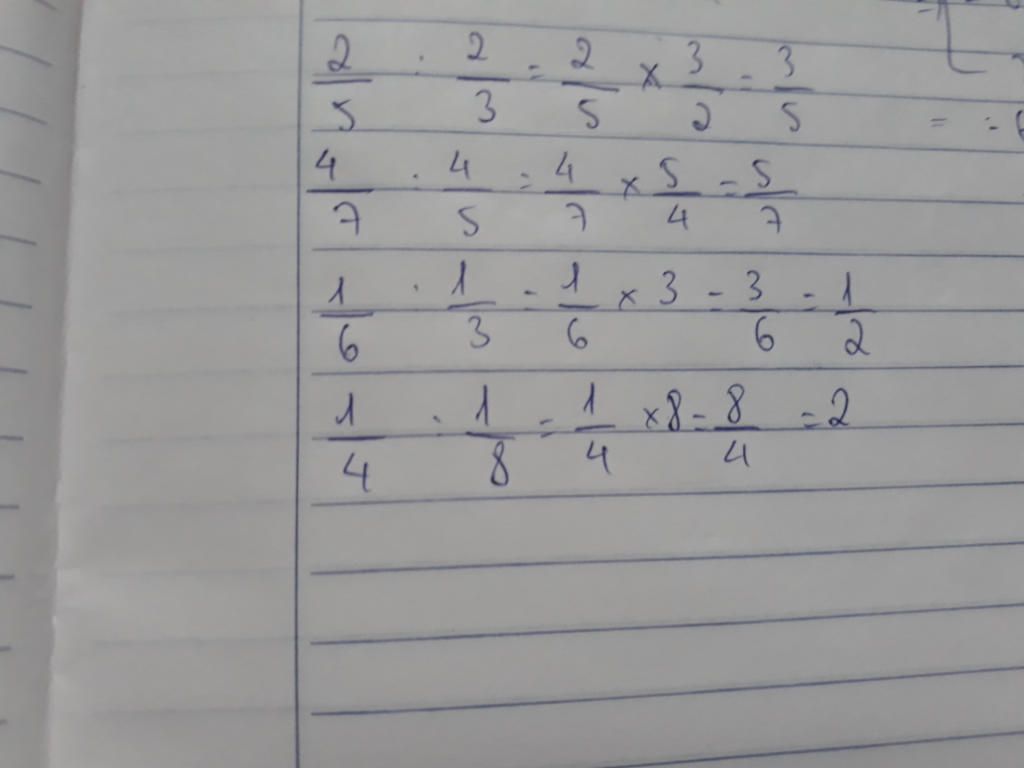 2/5 : 2/3 = 2/5 × 3/2 = 3/5
4/7 : 4/5 = 4/7 × 5/4 = 5/7
1/6 : 1/3 = 1/6 × 3 = 3/6 = 1/2
1/4 : 1/8 = 1/4 × 8 = 8/4 = 2